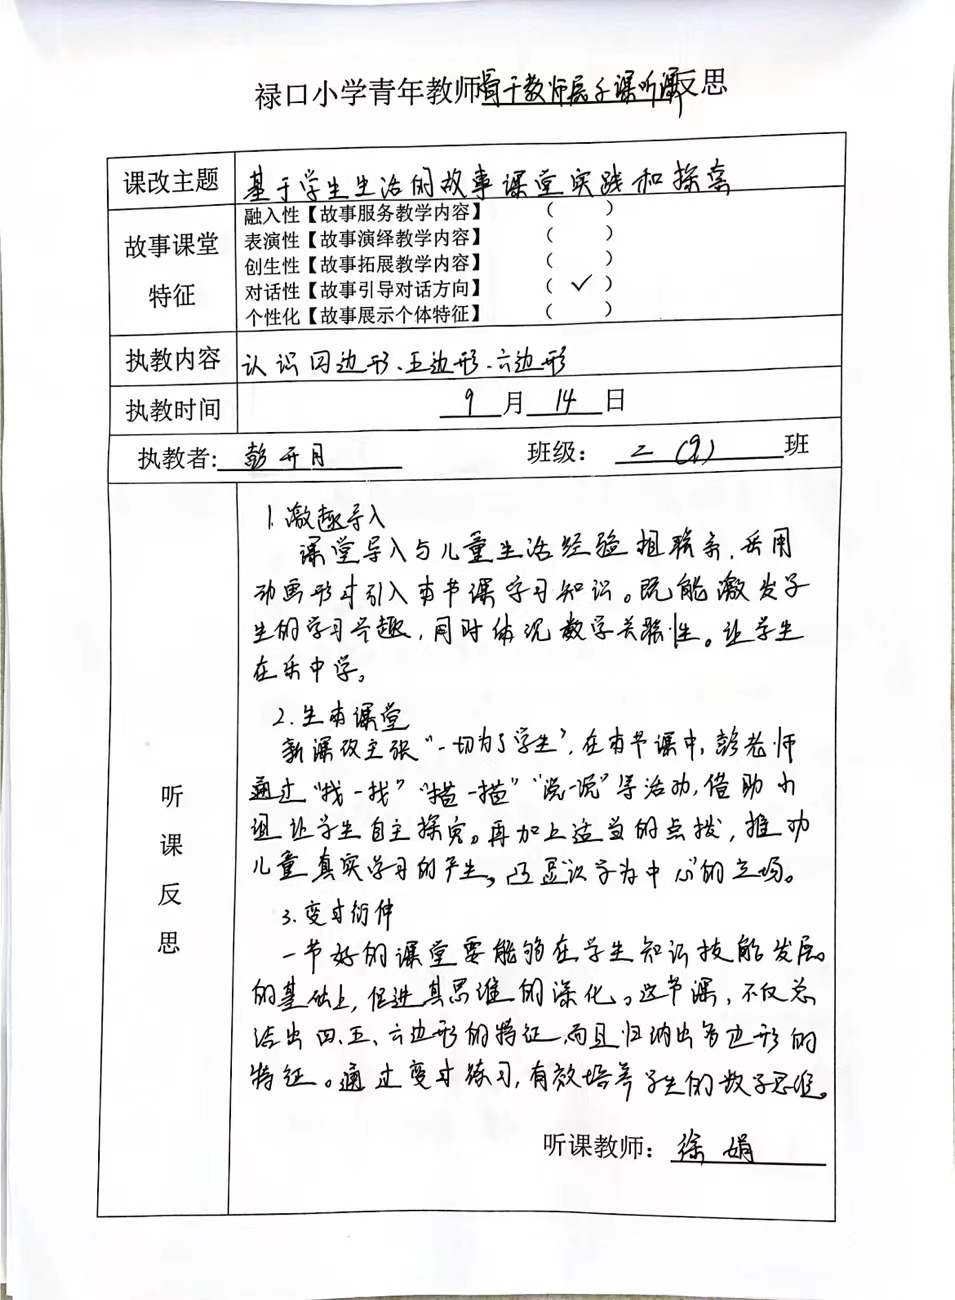 禄口小学青年教师骨干教师展示课听课反思
课改主题 基于学生生活的故事课堂实践和探索
故事课堂特征
融入性【故事服务教学内容】 （ ）
表演性【故事演绎教学内容】 （ ）
创生性【故事拓展教学内容】 （ ）
对话性【故事引导对话方向】 （ ✓ ）
个性化【故事展示个体特征】 （ ）
执教内容 认识四边形、五边形、六边形
执教时间 9 月 14 日
执教者: 彭开月 班级： 二（9） 班
听课反思
1.激趣导入
课堂导入与儿童生活经验相联系，采用
动画形式引入本节课学习知识。既能激发学
生的学习兴趣，同时体现数学关联性。让学生
在乐中学。
2.生本课堂
新课改主张“一切为了学生”，在本节课中，彭老师
通过“找一找”“描一描”“说一说”等活动，借助小
组让学生自主探究。再加上适当的点拨，推动
儿童真实学习的产生，凸显以学为中心的立场。
3.变式衍伸
一节好的课堂要能够在学生知识技能发展
的基础上，促进其思维的深化。这节课，不仅总
结出四、五、六边形的特征，而且归纳出多边形的
特征。通过变式练习，有效培养学生的数学思维。
听课教师： 徐娟